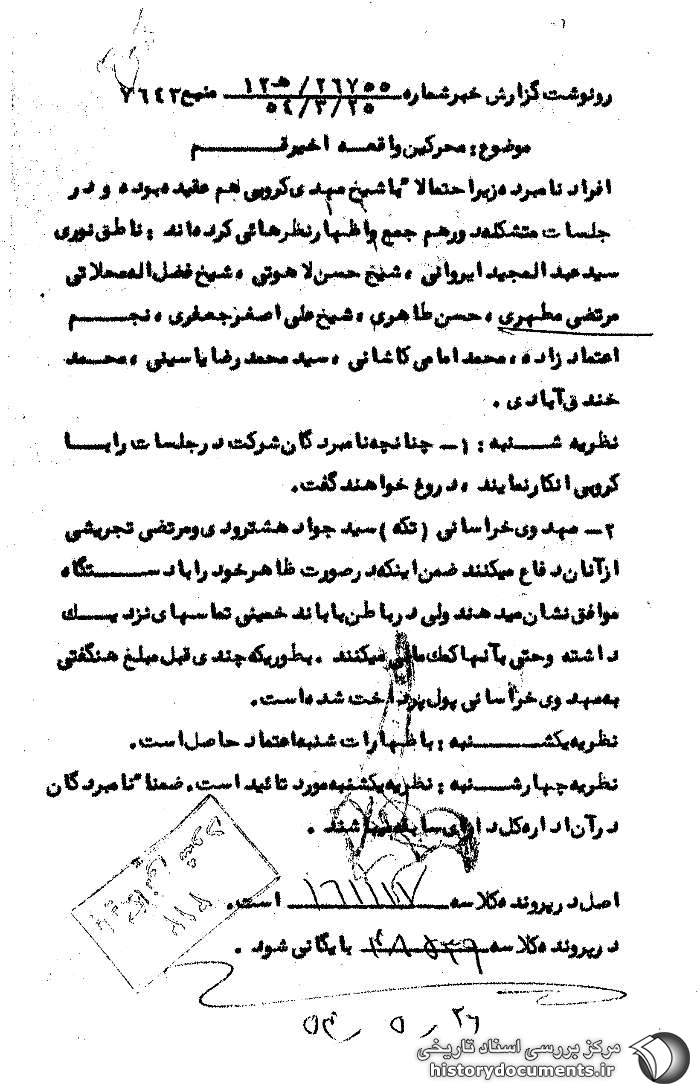 رونوشت گزارش خبر شماره ۲۶۷۵۵/ﻫ ۱۲ منبع ۷۶۴۳
۵۴/۳/۲۵
موضوع : محرکین واقعه اخیر قم
افراد نامبرده زیر احتمالا" با شیخ مهدی کروبی هم عقیده بوده و در
جلسات متشکله دور هم جمع و اظهار نظرهائی کرده اند : ناطق نوری
سید عبدالمجید ایروانی ، شیخ حسن لاهوتی ، شیخ فضل اله محلاتی
مرتضی مطهری ، حسن طاهری ، شیخ علی اصغر جعفری ، نجم
اعتماد زاده ، محمد امامی کاشانی ، سید محمد رضا یاسینی ، محمد
خندق آبادی .
نظریه شنبه : ۱ــ چنانچه نامبردگان شرکت در جلسات را با
کروبی انکار نمایند ، دروغ خواهند گفت .
۲ــ مهدوی خراسانی (تکه) سید جواد هشترودی و مرتضی تجریشی
از آنان دفاع میکنند ضمن اینکه در صورت ظاهر خود را با دستگاه
موافق نشان میدهند ولی در باطن با باند خمینی تماسهای نزدیک
داشته و حتی بآنها کمک مالی میکنند . بطوریکه چندی قبل مبلغ هنگفتی
به مهدوی خراسانی پول پرداخت شده است .
نظریه یکشنبه : باظهارات شنبه اعتماد حاصل است .
نظریه چهارشنبه : نظریه یکشنبه مورد تائید است . ضمنا" نامبردگان
در آن اداره کل دارای سابقه میباشند .
اصل در پرونده کلاسه ۱۶۱۱۱۷ است .
در پرونده کلاسه بایگانی شود .
بایگانی شود
۳۱۲
۵۴/۵/۲۶
مرکز بررسی اسناد تاریخی
historydocuments.ir